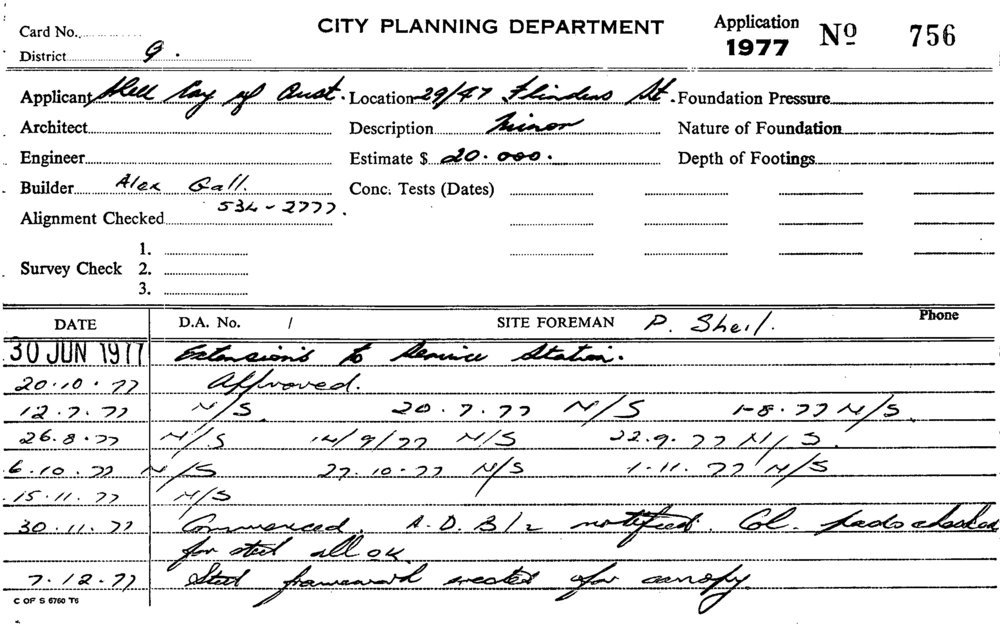 CITY PLANNING DEPARTMENT
Application 1977 No 756
Card No.
District 9.
Applicant Shell Coy of Aust. Location 29/47 Flinders St. Foundation Pressure
Architect Description Minor Nature of Foundation
Engineer Estimate $ 20.000. Depth of Footings
Builder Alex Gall. Conc. Tests (Dates)
534-2777.
Alignment Checked
1.
Survey Check 2.
3.
DATE D.A. No. / SITE FOREMAN P. Sheil. Phone
30 JUN 1977 Extensions to Service Station.
20.10.77 Approved.
12.7.77 N/S. 20.7.77 N/S 1-8.77 N/S.
26.8.77 N/S 14/9/77 N/S 22.9.77 N/S.
6.10.77 N/S 27.10.77 N/S 1.11.77 N/S
15.11.77 N/S
30.11.77 Commenced. A.D. B/2 notified. Col. pads checked
for steel all ok
7.12.77 Steel framework erected for canopy.
C OF S 6760 T6